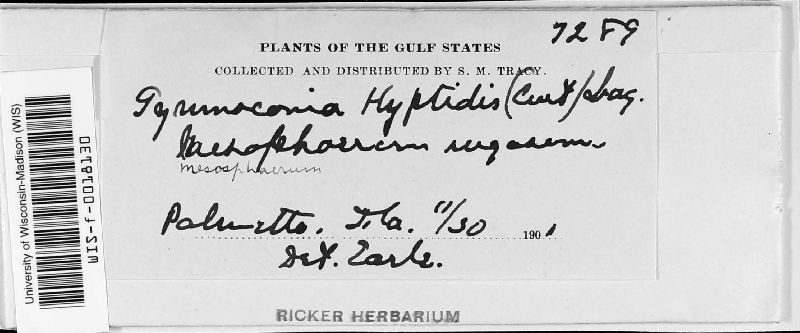 7289
PLANTS OF THE GULF STATES
COLLECTED AND DISTRIBUTED BY S. M. TRACY.
Gymnoconia Hyptidis (Curt) Lag.
Mesosphaerum rugosum.
mesosphaerum
Palmetto. Fla. 11/30 1901
Det. Earle.
RICKER HERBARIUM
University of Wisconsin-Madison (WIS)
WIS-f-0018130